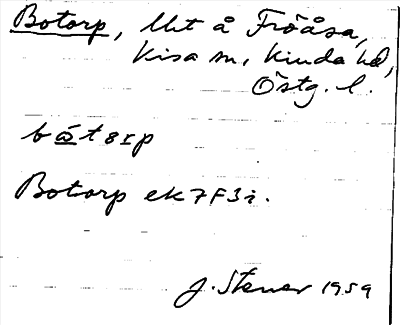 Botorp, lht å Fröåsa,
Kisa sn, Kinda hd,
Östg. l.
bo̲t8rp
Botorp ek 7F3i.
J. Stener 1959